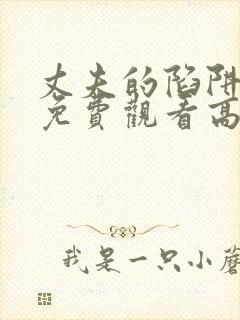 丈夫的陷阱
免費觀看高
我是一只小蘑